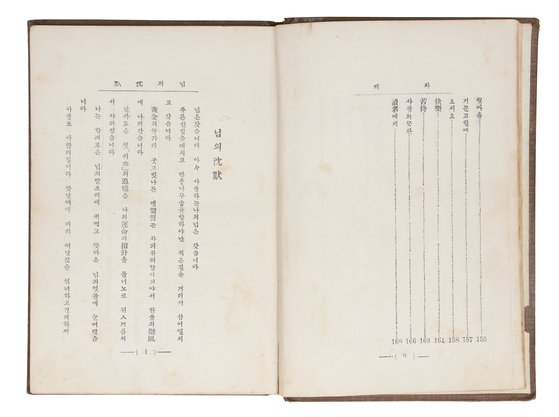 차 례
ᄭᅩᆺ싸옴 155
거문고탈ᄯᅢ 157
오서요 158
快樂 161
苦待 163
사랑의ᄭᅳᆺ판 166
讀者에게 168
( 8 )
님의沈默
님의沈默
님은갓슴니다 아々 사랑하는나의님은 갓슴니다
푸른산빗을ᄭᅢ치고 단풍나무숩을향하야난 적은길을 거러서 참어ᄯᅥᆯ치
고 갓슴니다
黃金의ᄭᅩᆺ가티 굿고빗나든 옛盟誓는 차듸찬ᄯᅴᄭᅳᆯ이되야서 한숨의微風
에 나러갓슴니다
날카로은 첫「키쓰」의追憶은 나의運命의指針을 돌너노코 뒷거름처
서 사러젓슴니다
나는 향긔로은 님의말소리에 귀먹고 ᄭᅩᆺ다은 님의얼골에 눈머럿슴
니다
사랑도 사람의일이라 맛날ᄯᅢ에 미리 ᄯᅥ날것을 염녀하고경계하지
( 1 )